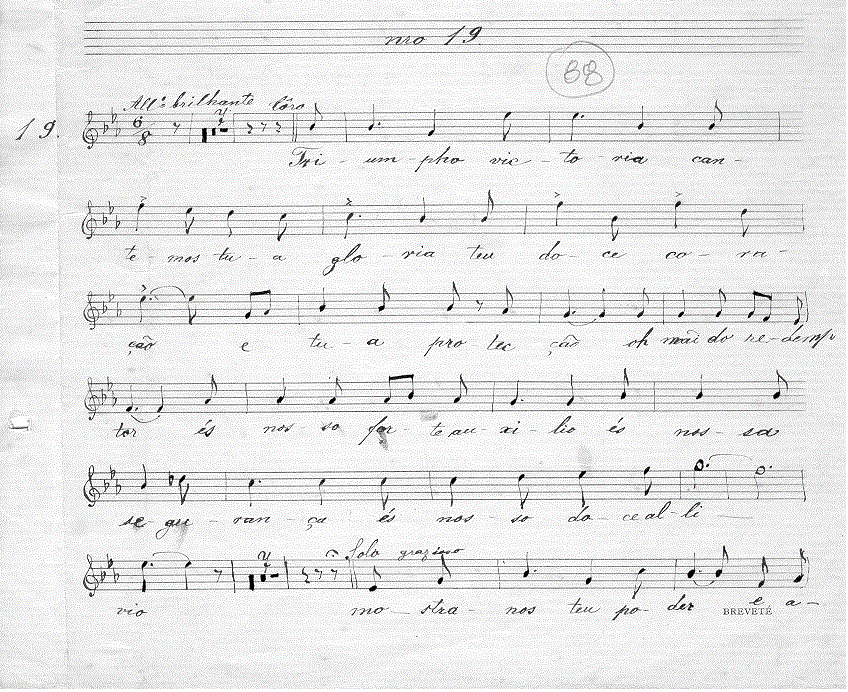 nro 19
88
19.
All.º brilhante Côro
6/8
Tri - um - pho vic - to - ria can -
te - mos tu - a glo - ria teu do - ce co - ra -
ção e tu - a pro tec ção oh mãi do re - demp
tor és nos - so for - te au - xi - lio és nos - sa
se - gu - ran - ça és nos - so do - ce al - li
Solo grazioso
vio mo - stra - nos teu po - der e a -
BREVETÉ